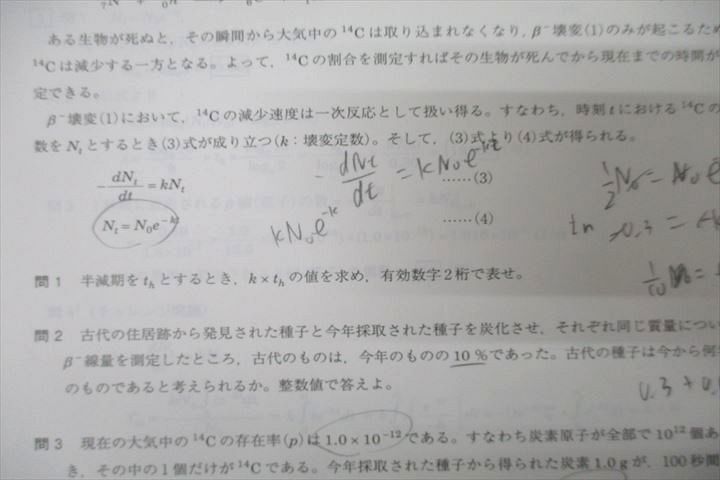 ある生物が死ぬと，その瞬間から大気中の ¹⁴C は取り込まれなくなり，β⁻壊変(1)のみが起こるため
¹⁴C は減少する一方となる。よって，¹⁴C の割合を測定すればその生物が死んでから現在までの時間が
定できる。
β⁻壊変(1)において，¹⁴C の減少速度は一次反応として扱い得る。すなわち，時刻 t における ¹⁴C の
数を Nₜ とするとき(3)式が成り立つ(k：壊変定数)。そして，(3)式より(4)式が得られる。
-dNₜ/dt = kNₜ ……(3)
- dNt/dt = kN₀e
Nₜ = N₀e^(-kt) ……(4)
kN₀e^(-k)
1/2 N₀ = N₀e
-0.3 =
1/10 N₀ =
問 1 半減期を tₕ とするとき，k × tₕ の値を求め，有効数字 2 桁で表せ。
問 2 古代の住居跡から発見された種子と今年採取された種子を炭化させ，それぞれ同じ質量につい
β⁻線量を測定したところ，古代のものは，今年のものの 10 % であった。古代の種子は今から何
のものであると考えられるか。整数値で答えよ。
0.3 + 0.
問 3 現在の大気中の ¹⁴C の存在率(p)は 1.0 × 10⁻¹² である。すなわち炭素原子が全部で 10¹² 個あ
き，その中の 1 個だけが ¹⁴C である。今年採取された種子から得られた炭素 1.0 g が，100 秒間